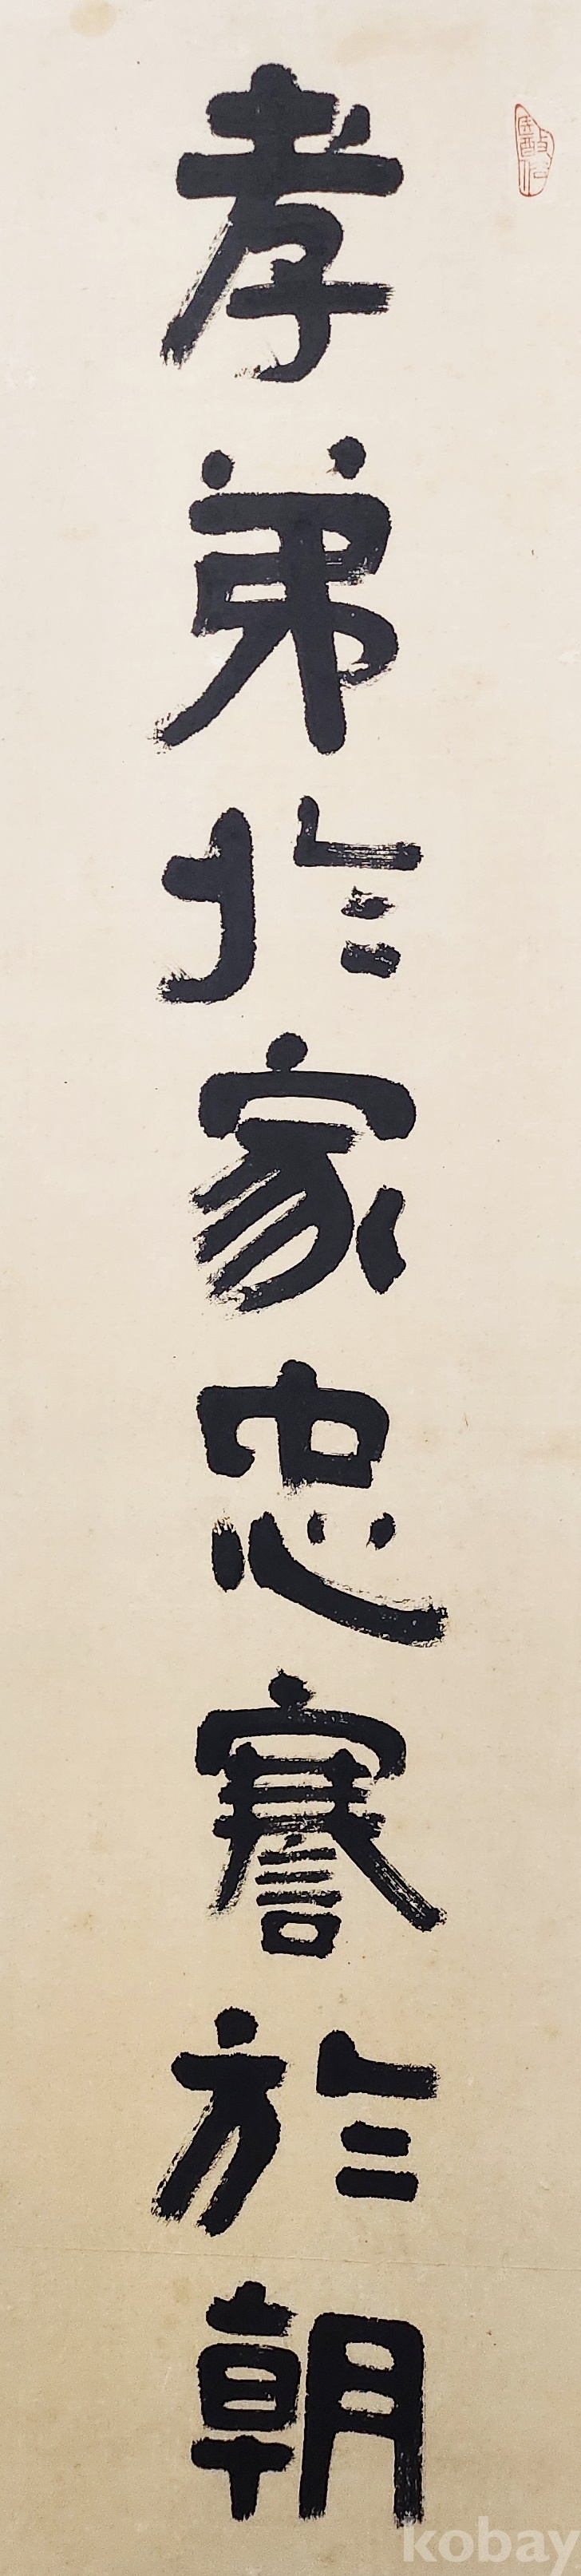 孝弟於家忠謇於朝
kobay